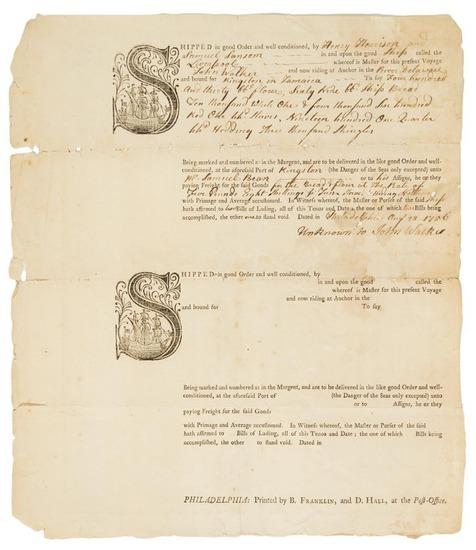 SHIPPED in good Order and well conditioned, by Henry Harrison and
Samuel Sansom in and upon the good Ship called the
whereof is Master for this present Voyage
John Walker and now riding at Anchor in the River Delaware
and bound for Kingston in Jamaica To say Four hundred
and thirty flour, Sixty Ship Bread
Ten thousand White Oak & four thousand five hundred
Red Oak Staves, Nineteen hundred One Quarter
Hedding Three thousand Shingles
Being marked and numbered as in the Margent, and are to be delivered in the like good Order and well-
conditioned, at the aforesaid Port of Kingston (the Danger of the Seas only excepted) unto
Mr. Samuel Bean or to his Assigns, he or they
paying Freight for the said Goods for the Bread & flour at the Rate of
with Primage and Average accustomed. In Witness whereof, the Master or Purser of the said Ship
hath affirmed to Bills of Lading, all of this Tenor and Date; the one of which Bills being
accomplished, the other to stand void. Dated in Philadelphia Aug 1756
Unknown to John Walker
SHIPPED in good Order and well conditioned, by
in and upon the good called the
whereof is Master for this present Voyage
and now riding at Anchor in the
and bound for To say
Being marked and numbered as in the Margent, and are to be delivered in the like good Order and well-
conditioned, at the aforesaid Port of (the Danger of the Seas only excepted) unto
or to Assigns, he or they
paying Freight for the said Goods
with Primage and Average accustomed. In Witness whereof, the Master or Purser of the said
hath affirmed to Bills of Lading, all of this Tenor and Date; the one of which Bills being
accomplished, the other to stand void. Dated in
PHILADELPHIA: Printed by B. FRANKLIN, and D. HALL, at the Post-Office.